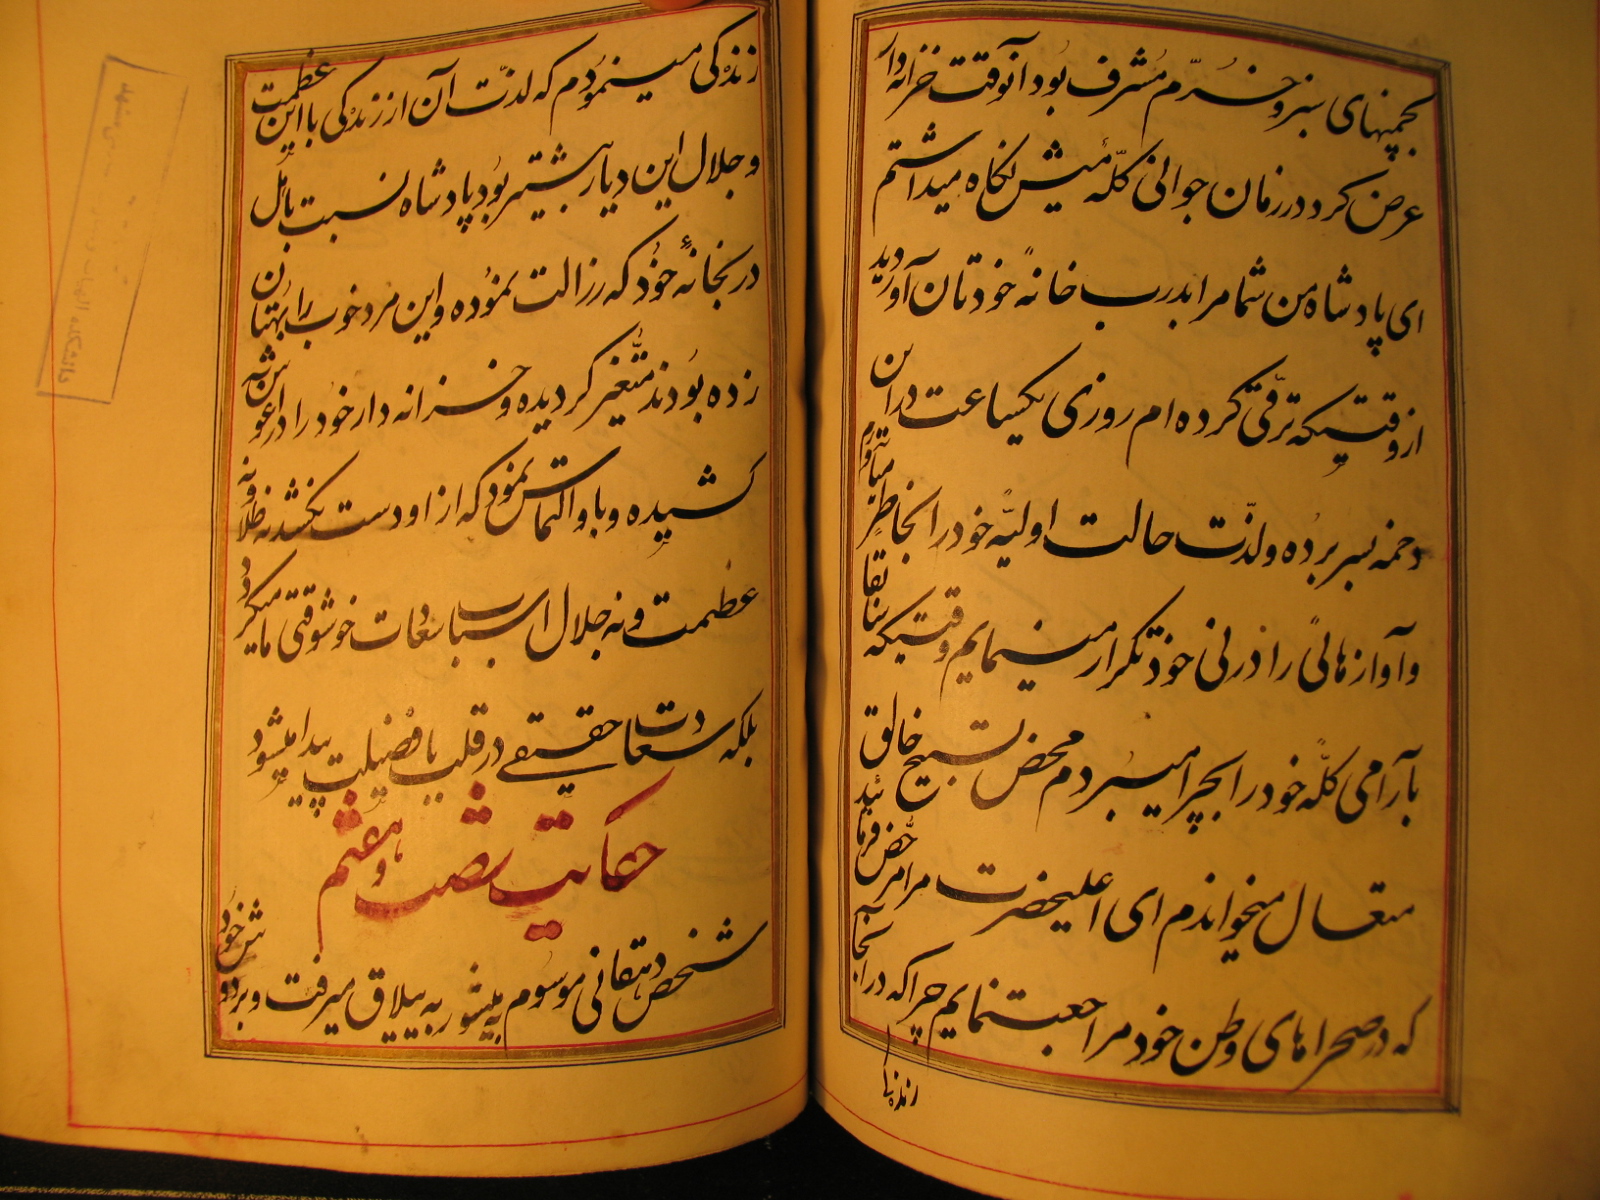 بچمنهای سبز و خُرّم مُشرف بُود آنوقت خزانه دار
عرض کرد در زمان جوانی گلّهٔ میش نگاه میداشتم
ای پادشاه من شما مرا بدرب خانهٔ خودتان آوردید
از وقتیکه ترقّی کرده ام روزی یکساعت در این
دخمه بسر برده و لذّت حالت اولیّه خود را بخاطر میآورم
و آوازهائی را در نی خود تکرار مینمایم وقتیکه سابقا
بآرامی گلّه خود را بچرا میبردم محض تسبیح خالق
متعال میخواندم ای اعلیحضرت مرا مرخّض فرمائید
که در صحراهای وطن خود مراجعت نمایم چرا که در آنجا
زندگی مینمودم که لذّت آن از زندگی با این عظمت
و جلال این دیار بیشتر بود پادشاه نسبت باهل
دربخانهٔ خود که رزالت نموده و این مرد خوب را بُهتان
زده بُودند متُغیّر گردیده و خزانه دار خود را در آغوشش
کشیده و باو التماس نمود که از او دست نکشد نه طلا و نه
عظمت و نه جلال اسباب سعادت و خوشوقتی ما میگردد
بلکه سعادت حقیقے در قلب با فضیلت پیدا میشود
حکایت شصت و هفتم
شخص دهقانی موسوم به پیشور به ییلاق میرفت و بر دوش خود